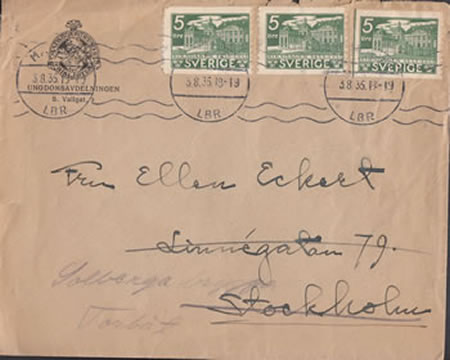 5 5 5
ÖRE ÖRE ÖRE
SVERIGE SVERIGE SVERIGE
3.8.35.19-19 3.8.35.19-19 3.8.35.19-19
UNGDOMSAVDELNINGEN
S. Vallgat.
LBR LBR LBR
Fru Ellen Eckert
Linnégatan 79.
Solberga
Stockholm